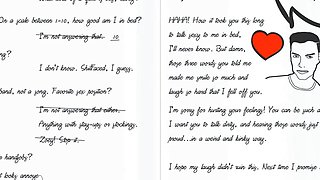 On a scale between 1-10, how good am I in bed?
I'm not answering that. 10
I don't know. Shitfaced, I guess.
band, not a song. Favorite sex position?
I'm not answering that either.
Anything with stay-ups or stockings.
Zoey! Stop it.
handjobs?
HAHA! How it took you this long
to talk sexy to me in bed,
I'll never know. But damn,
those three words you told me
made me smile so much and
laugh so hard that I fell off you.
I'm sorry for hurting your feelings! You can be such a
I want you to talk dirty, and hearing those words just
proud...in a weird and kinky way.
I hope my laugh didn't ruin this. Next time I promise